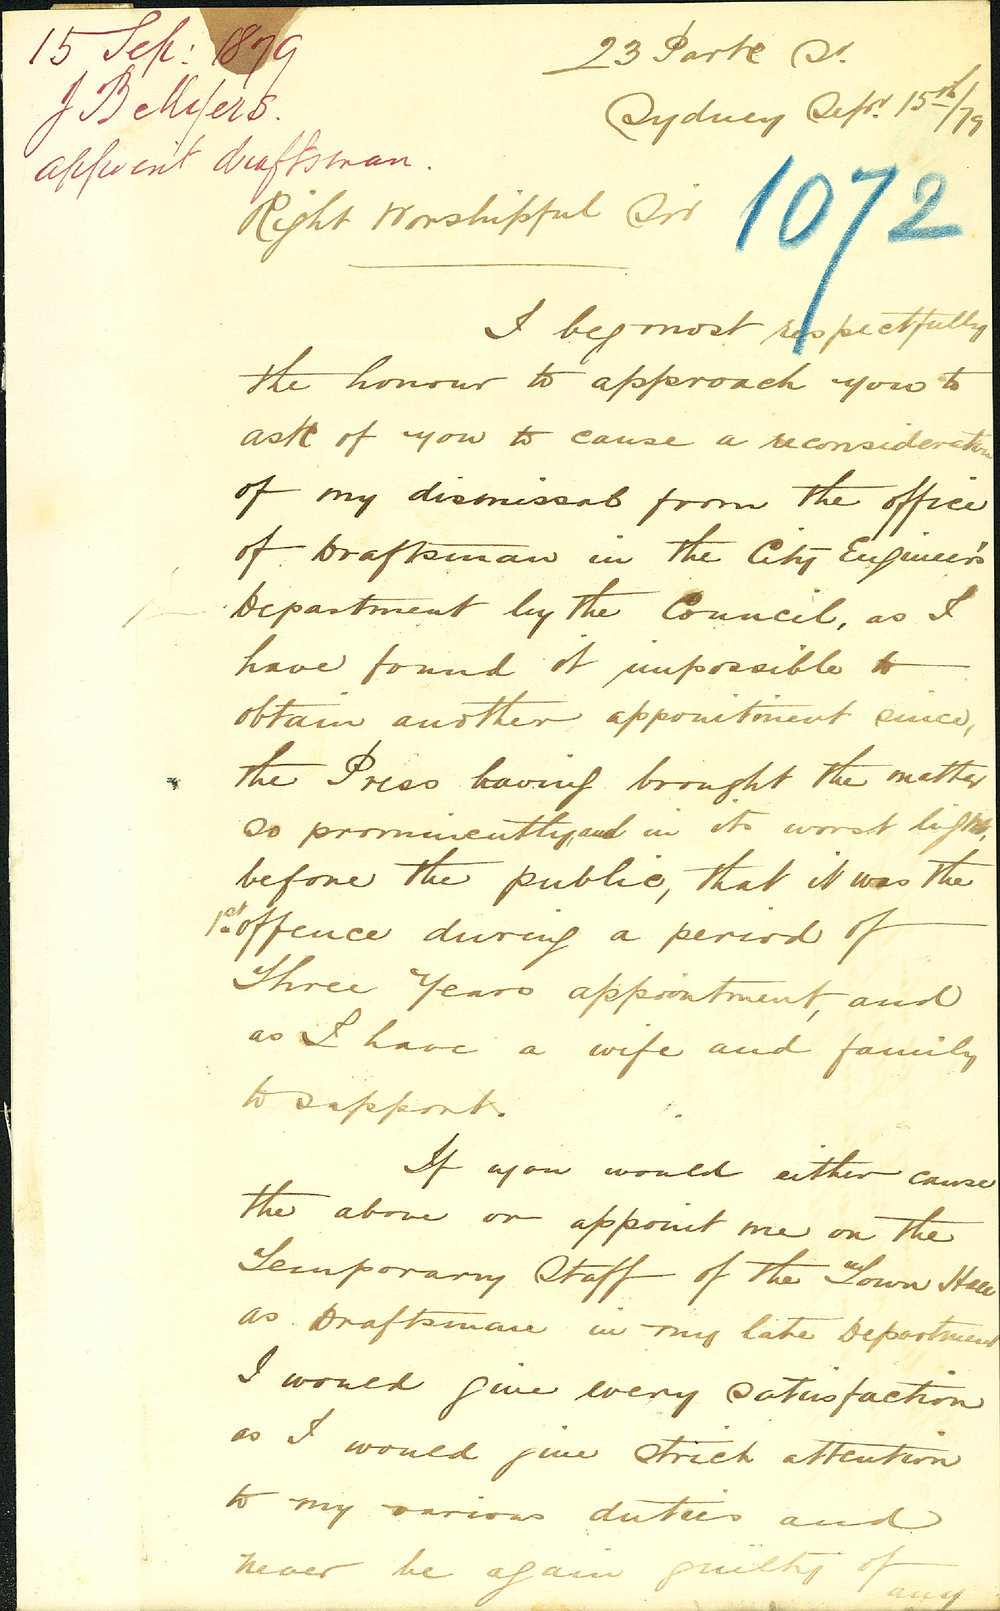 15 Sep: 1879
J B Myers.
appoint draftsman.
23 Park St.
Sydney Sepr. 15th/79
1072
Right Worshipful Sir
I beg most respectfully
the honour to approach you to
ask of you to cause a reconsideration
of my dismissal from the office
of Draftsman in the City Engineer's
Department by the Council, as I
have found it impossible to
obtain another appointment since,
the Press having brought the matter
so prominently, and in its worst light,
before the public, that it was the
1st offence during a period of
Three Years appointment, and
as I have a wife and family
to support.
If you would either cause
the above or appoint me on the
Temporary Staff of the Town Hall
as Draftsman in my late Department
I would give every satisfaction
as I would give strict attention
to my various duties and
never be again guilty of
any